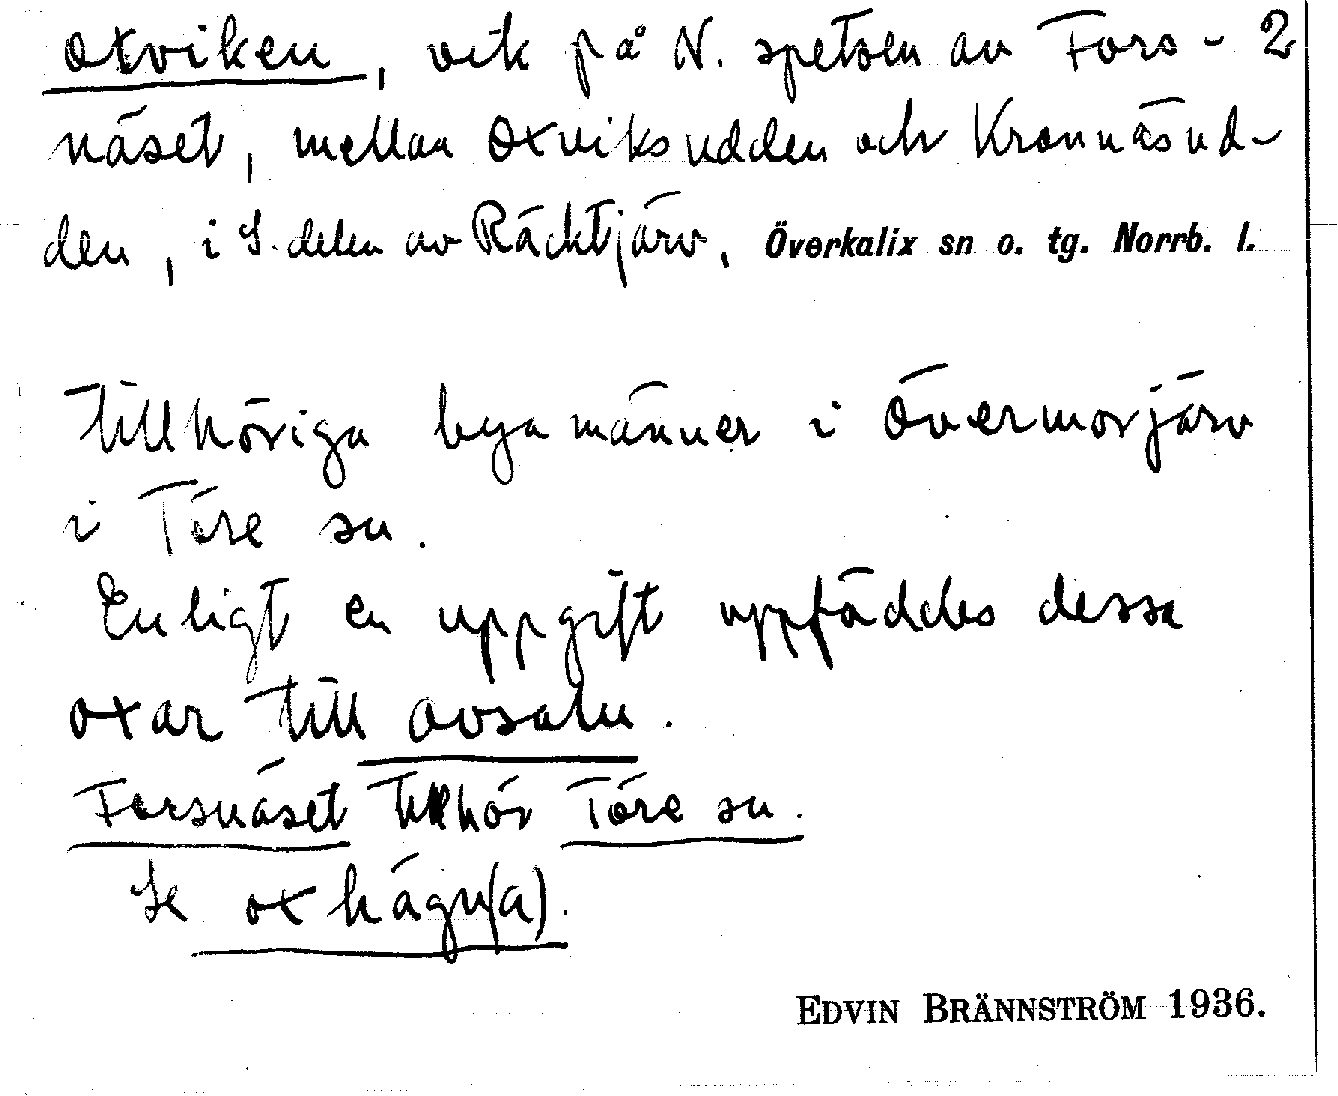 Oxviken, vik på N. spetsen av Fors- 2
näset, mellan Oxviksudden och Kronnäsud-
den, i S. delen av Räcktjärv, Överkalix sn o. tg. Norrb. l.
Tillhöriga byamänner i Övermorjärv
i Töre sn.
Enligt en uppgift uppföddes dessa
oxar till avsalu.
Forsnäset tillhör Töre sn.
Se oxhägn(a).
EDVIN BRÄNNSTRÖM 1936.